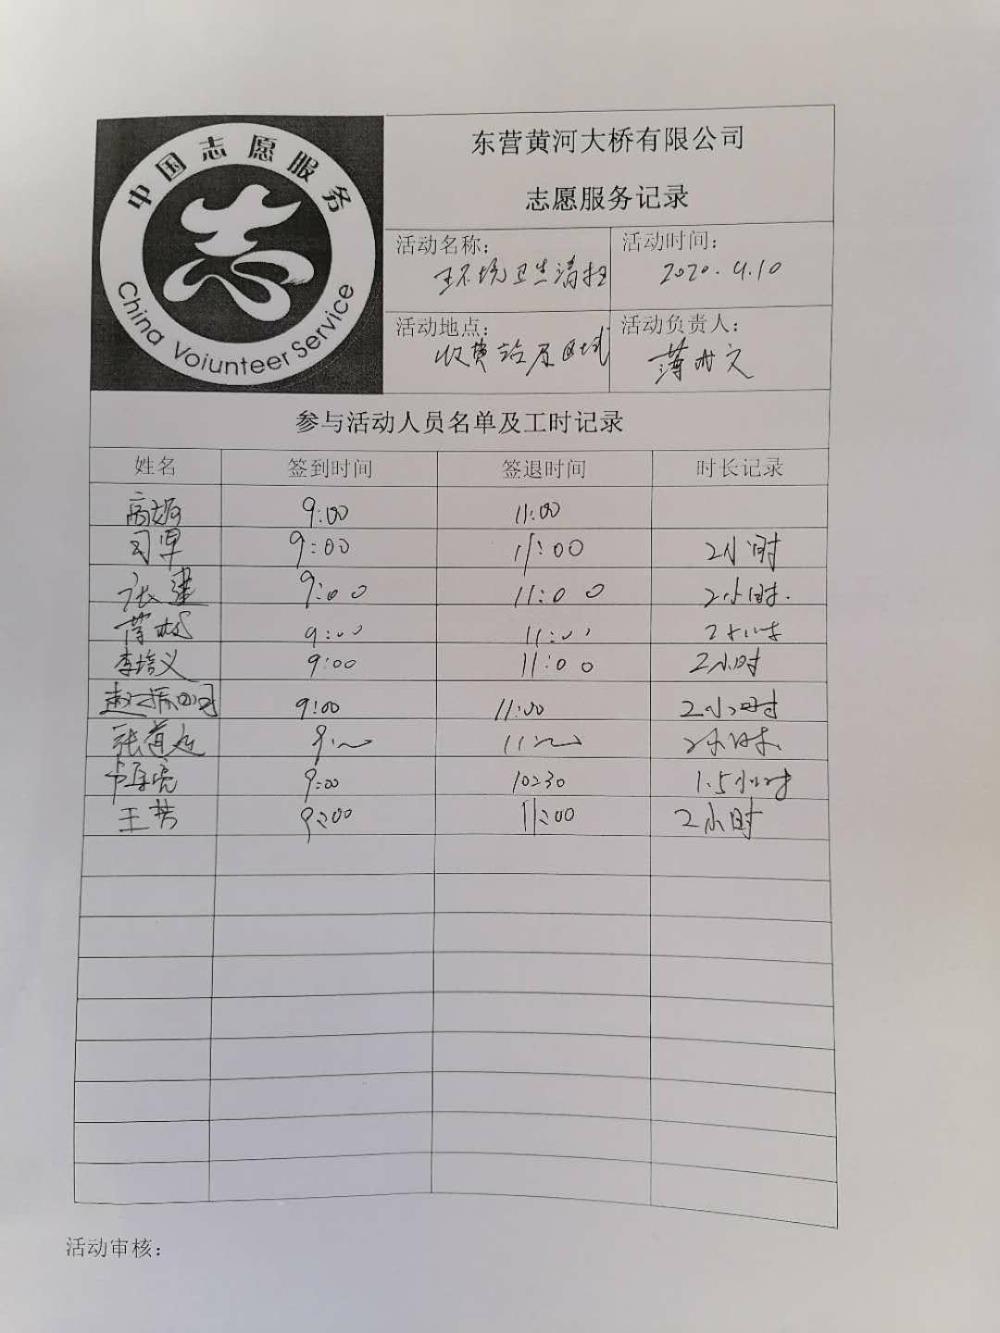 中国志愿服务
China Voiunteer Service
东营黄河大桥有限公司
志愿服务记录
活动名称：
环境卫生清扫
活动时间：
2020.4.10
活动地点：
收费站区域
活动负责人：
薄
参与活动人员名单及工时记录
姓名 签到时间 签退时间 时长记录
9:00 11:00
司军 9:00 11:00 2小时
张建 9:00 11:00 2小时.
9:00 11:00 2小时
李培义 9:00 11:00 2小时
赵振 9:00 11:00 2小时
张道 9: 11: 2小时.
9:00 10:30 1.5小时
王芳 9:00 11:00 2小时
活动审核：